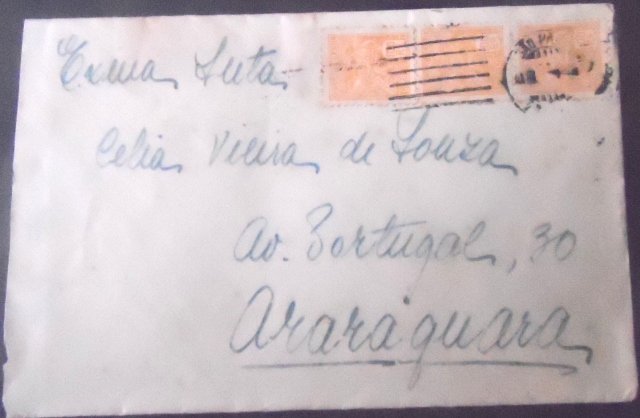 Exma Snta
Celia Vieira de Souza
Av. Portugal, 30
Araraquara